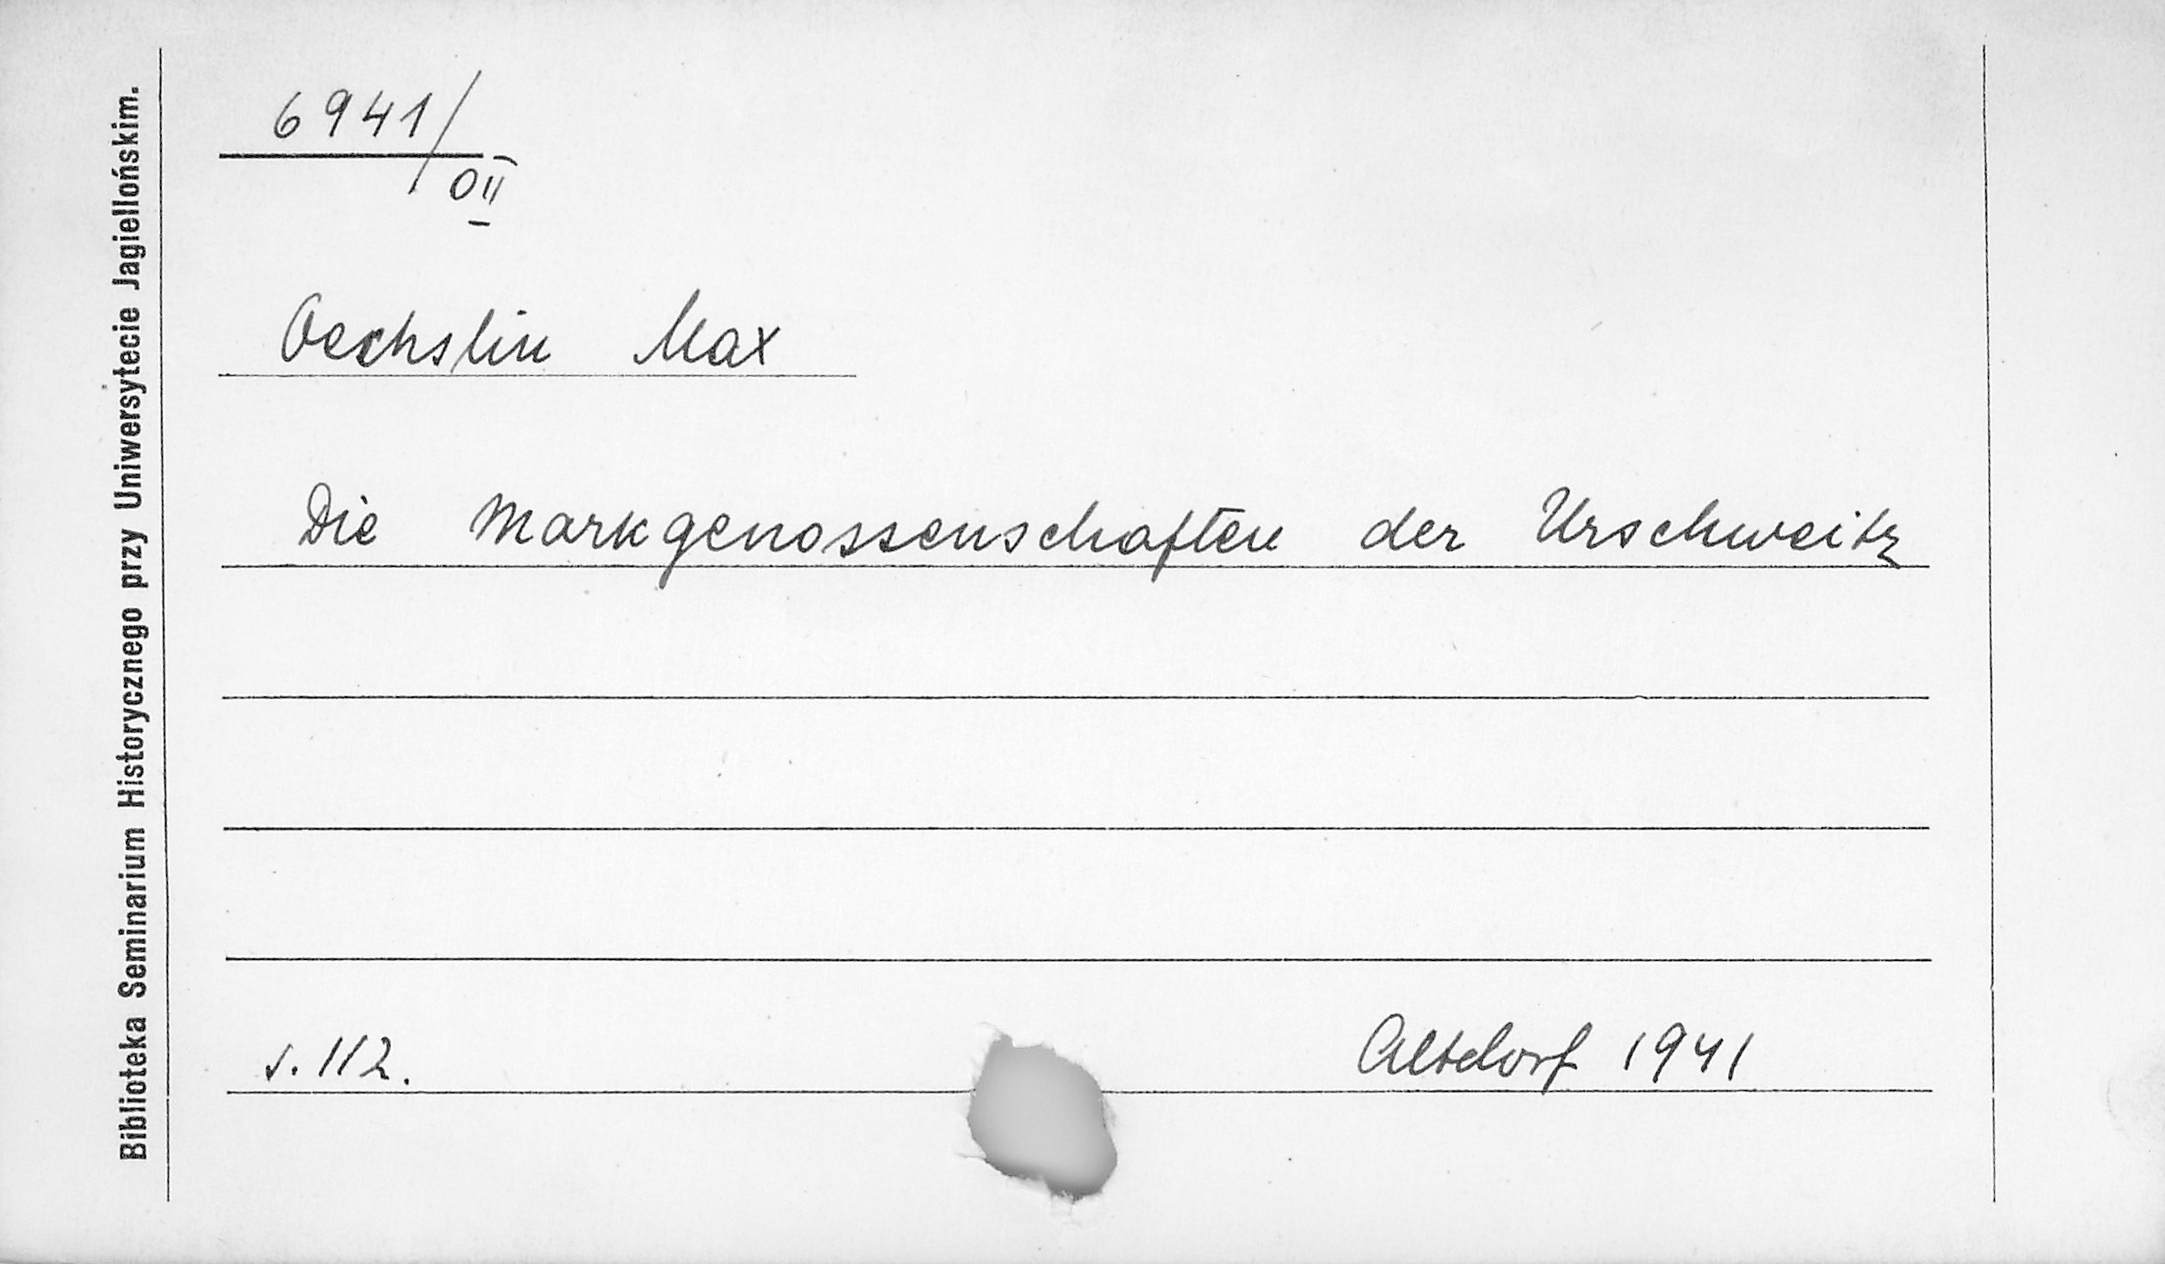 Biblioteka Seminarium Historycznego przy Uniwersytecie Jagiellońskim.
6941/OII
Oechslin Max
Die Markgenossenschaften der Urschweitz
s. 112.
Altdorf 1941